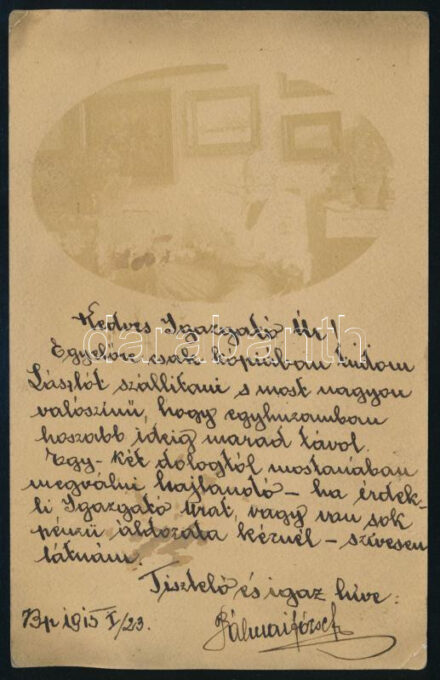 Kedves Igazgató Úr!
Egyelőre csak kópiában tudom
Lászlót szállitani s most nagyon
valószinű, hogy egyhuzamban
hoszabb ideig marad távol.
Egy-két dologtól mostanában
megválni hajlandó - ha érdek-
li Igazgató Urat, vagy van sok
pénzü áldozata kéznél - szivesen
látnám.
Tisztelő és igaz hive:
Bp 1915 I/23.
darabanth